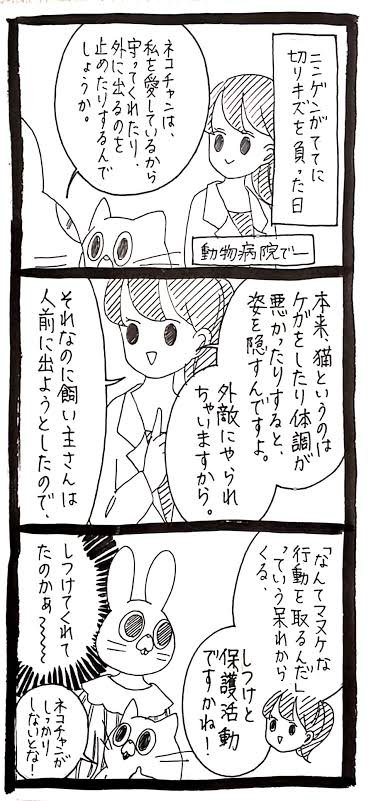 ニンゲンがててに
切りキズを負った日
動物病院でー
ネコチャンは、
私を愛しているから
守ってくれたり、
外に出るのを
止めたりするんで
しょうか。
本来、猫というのは
ケガをしたり体調が
悪かったりすると、
姿を隠すんですよ。
外敵にやられ
ちゃいますから。
それなのに飼い主さんは
人前に出ようとしたので、
「なんてマヌケな
行動を取るんだ」
っていう呆れから
くる、
しつけと
保護活動
ですかね!
しつけてくれて
たのかぁ〜〜〜
ネコチャンが
しっかり
しないとな!